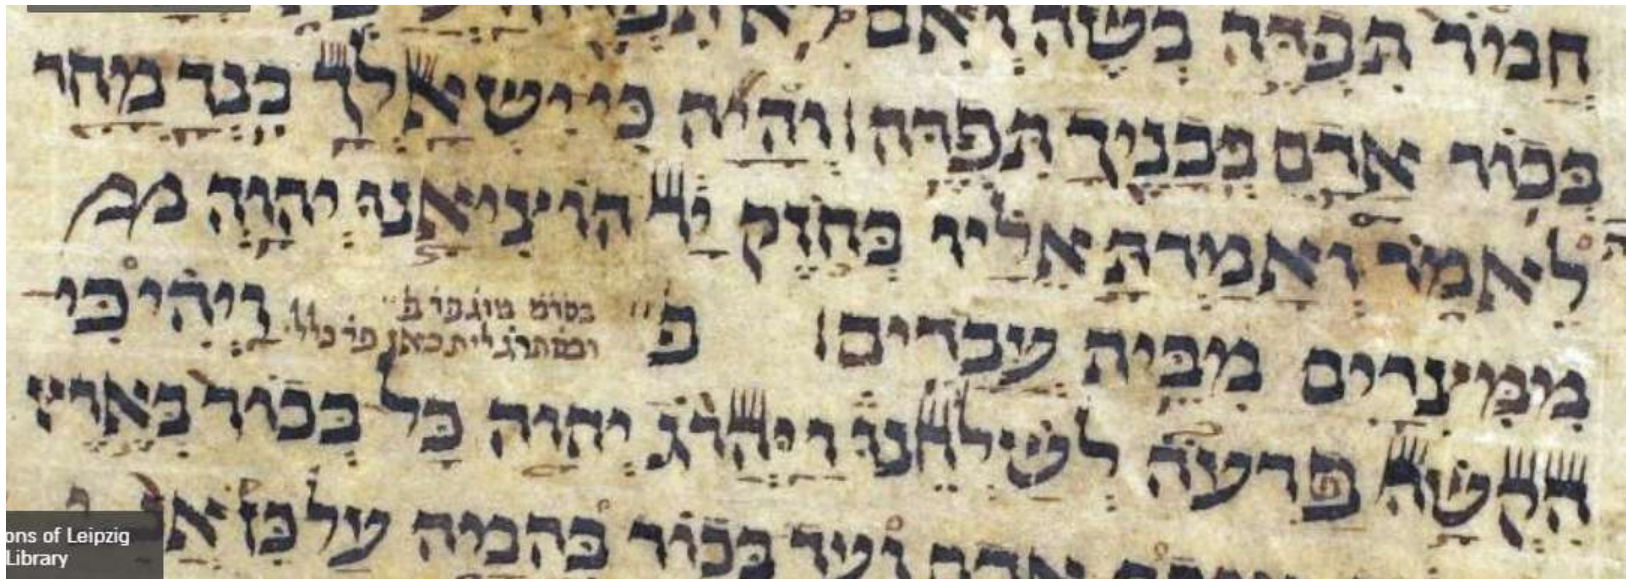 חמור תפדה בשה ואם לא
בכור אדם בבניך תפדה והיה כי ישאלך בנך מחר
לאמר ואמרת אליו בחזק יד הוציאנו יהוה ממ
ממצרים מבית עבדים פ ויהי כי
הקשה פרעה לשלחנו ויהרג יהוה כל בכור בארץ
אדם ועד בכור בהמה על כן
ons of Leipzig
Library